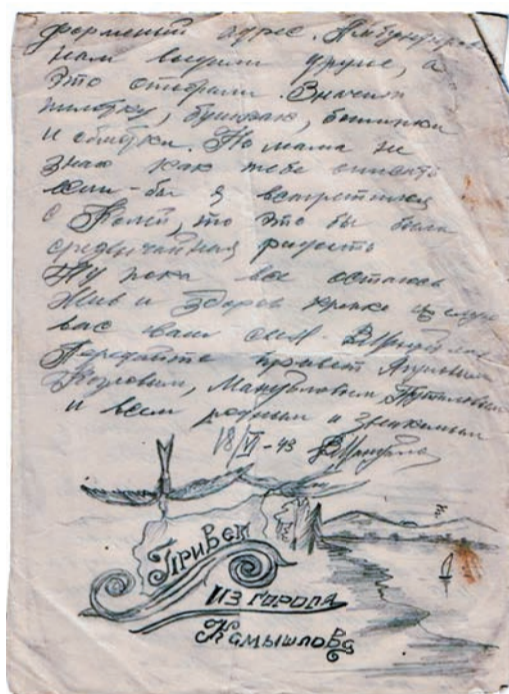 форменный адрес. Амундиров
нам выдали другое, а
это отобрали. Значит
пилотку, брюки, ботинки
и обмотки. Но мама не
знаю как тебе описать
если-бы я встретился
с Колей, то это бы была
средвычайная радость
Ну пока все остаюсь
Жив и здоров крепко целую
вас ваш сын
Передайте привет
Козловым,
и всем родным и знакомым
18/VI-43
Привет
Из города
Камышлова